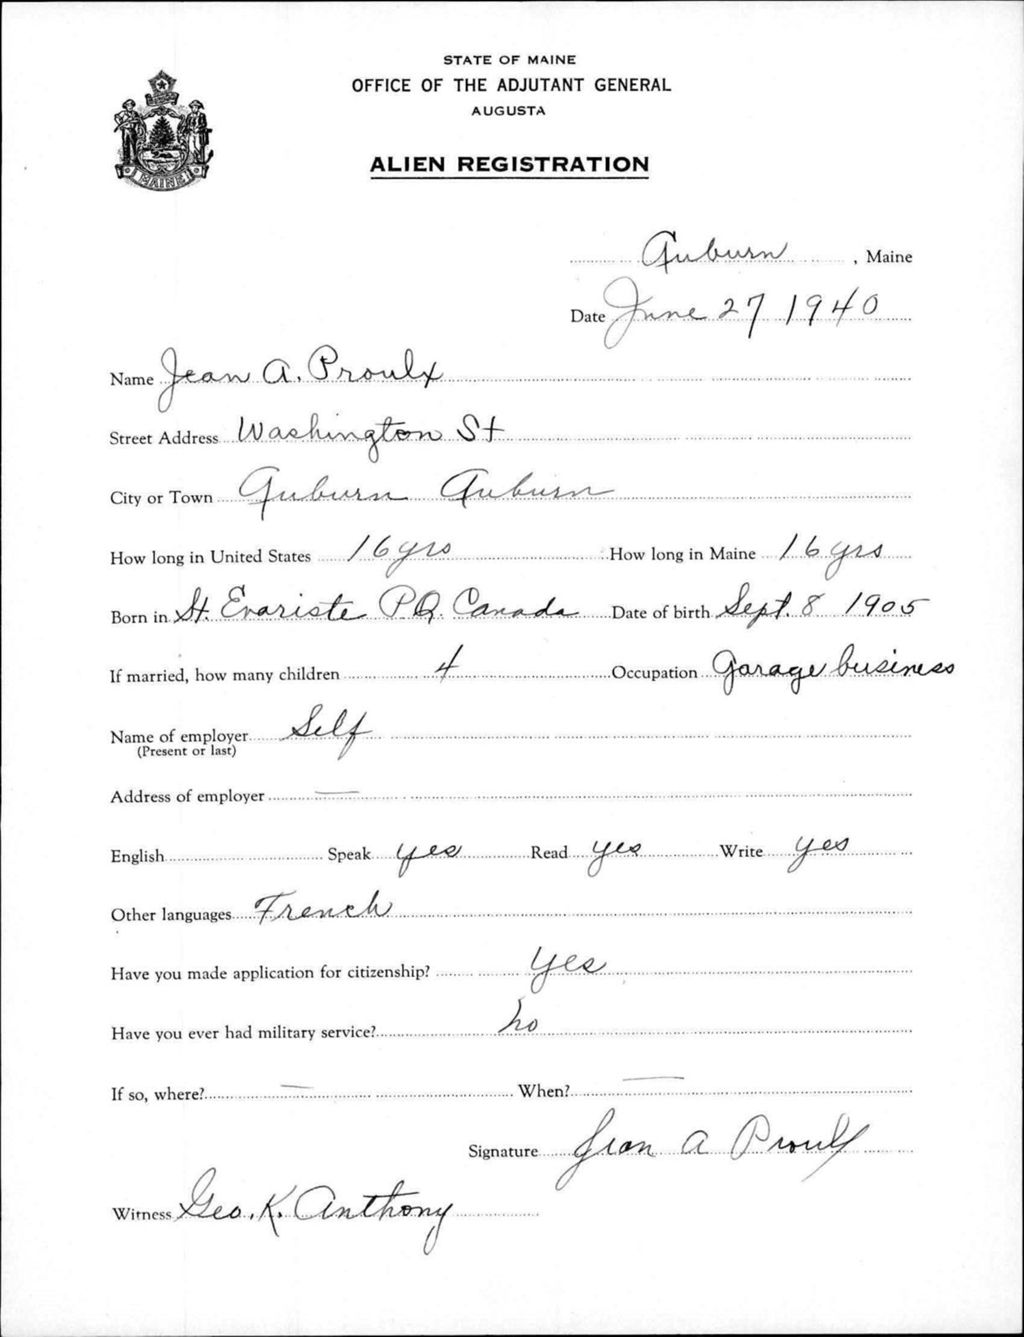 STATE OF MAINE
OFFICE OF THE ADJUTANT GENERAL
AUGUSTA
MAINE
ALIEN REGISTRATION
Auburn, Maine
Date June 27 1940
Name Jean A. Proulx
Street Address Washington St
City or Town Auburn Auburn
How long in United States 16 yrs How long in Maine 16 yrs
Born in St. Evariste P.Q. Canada Date of birth Sept. 8 1905
If married, how many children 4 Occupation Garage business
Name of employer Self
(Present or last)
Address of employer —
English Speak yes Read yes Write yes
Other languages French
Have you made application for citizenship? yes
Have you ever had military service? no
If so, where? — When? —
Signature Jean A Proulx
Witness Geo. K. Anthony